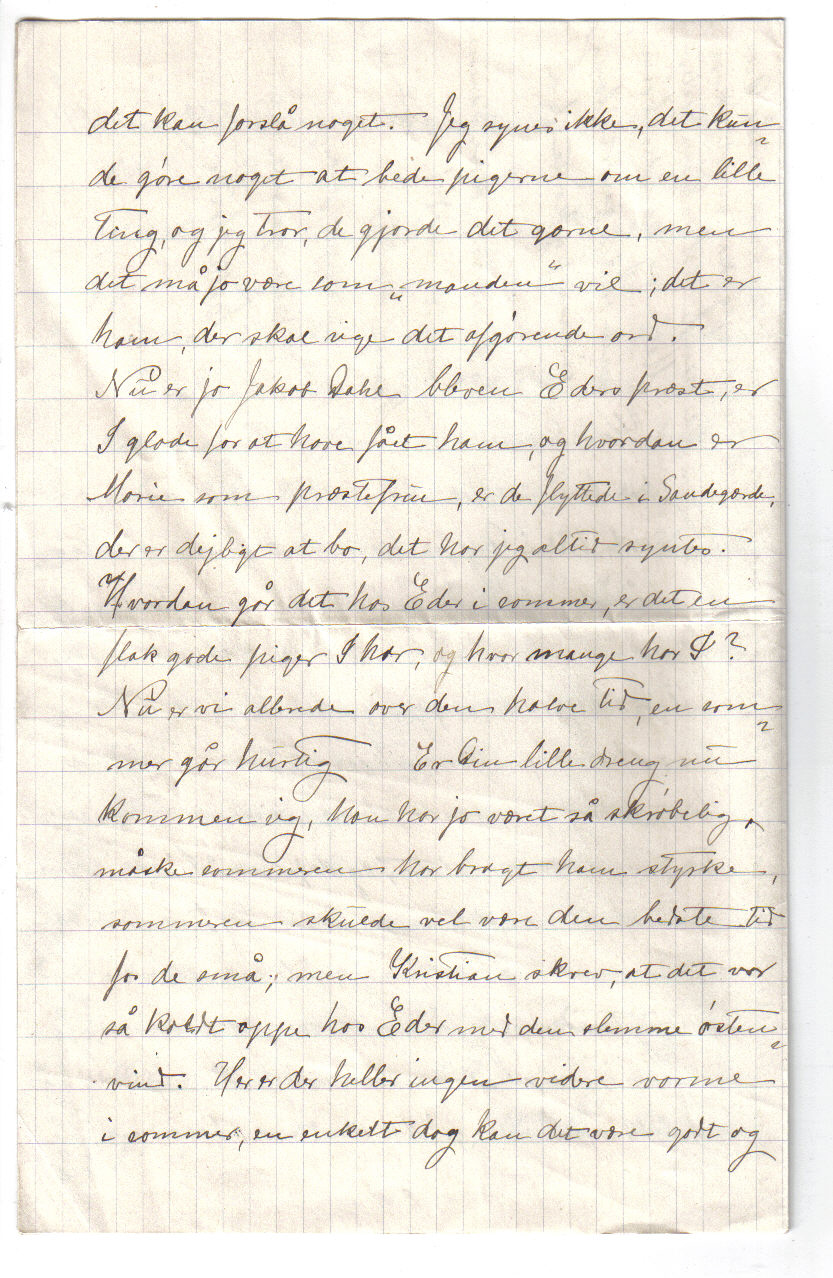 det kan forslå noget. Jeg synes ikke, det kun=
de göre noget at bede pigerne om en lille
ting, og jeg tror, de gjorde det gærne, men
det må jo være som „manden“ vil; det er
ham, der skal sige det afgörende ord.
Nu er jo Jakob Dahl bleven Eders præst, er
I glade for at have fået ham, og hvordan er
Marie som præstefrue, er de flyttede i Sandegærde,
der er dejligt at bo, det har jeg altid syntes.
Hvordan går det hos Eder i sommer, er det en
flok gode piger I har, og hvor mange har I?
Nu er vi allerede over den halve tid, en som=
mer går hurtig Er Din lille dreng nu
kommen sig, han har jo været så skröbelig,
måske sommeren har bragt ham styrke,
sommeren skulde vel være den bedste tid
for de små; men Kristian skrev, at det var
så koldt oppe hos Eder med den slemme östen=
vind. Her er der heller ingen videre varme
i sommer, en enkelt dag kan det være godt og